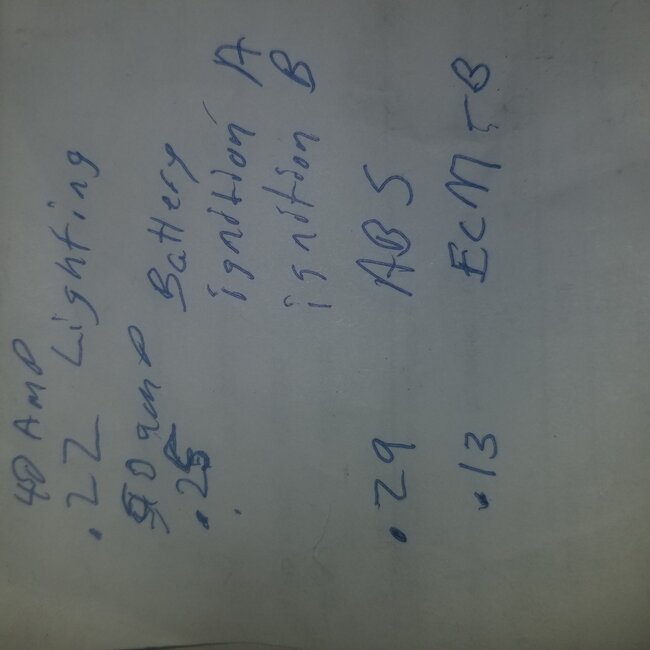 40 AMP
.22 Lighting
50 amp Battery
.25 ignition A
ignition B
.29 ABS
.13 ECM - B